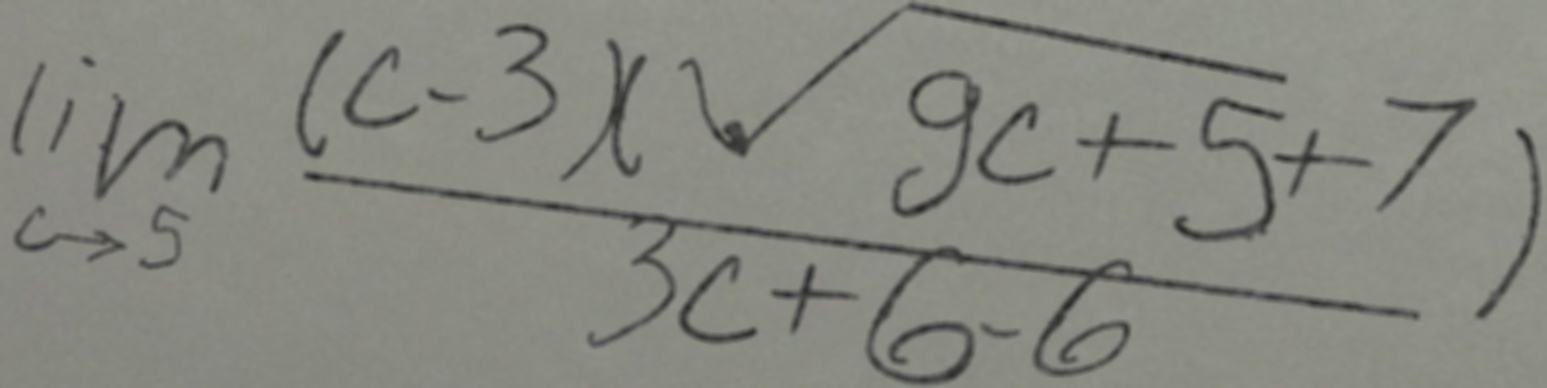 lim c→5 (c-3)(√(9c+5)+7) / 3c+6-6